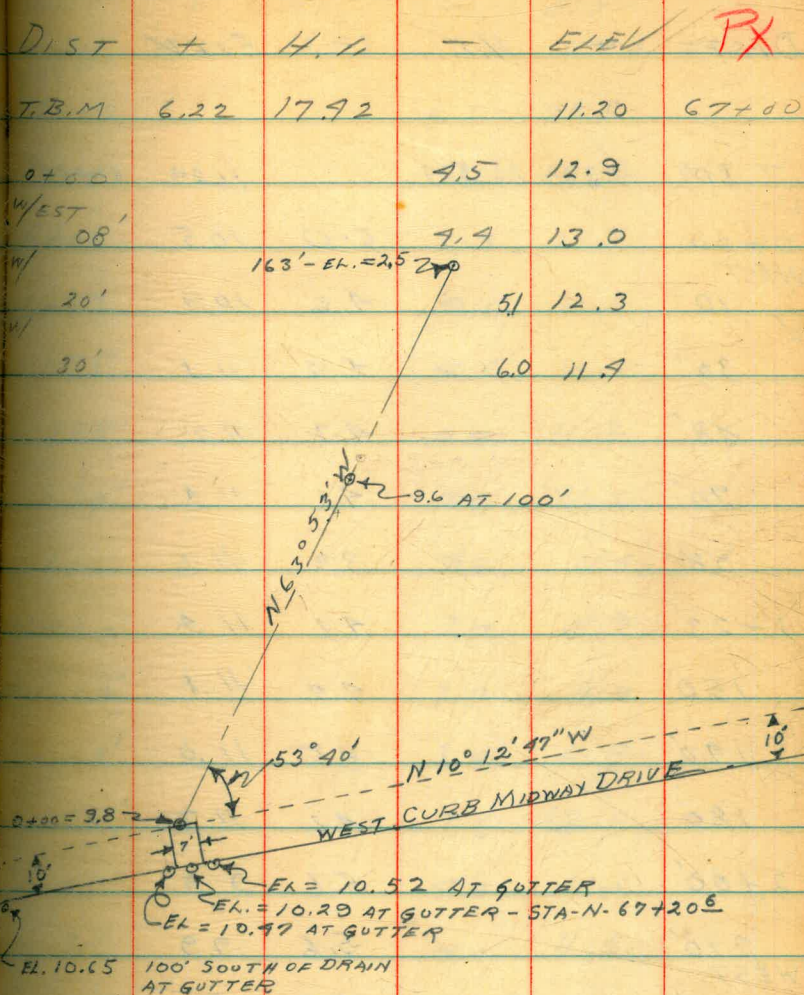 DIST + H.I. - ELEV PX
T.B.M 6.22 17.42 11.20 67+00
0+00 4.5 12.9
W/EST
08' 4.4 13.0
W/
163'- EL. = 2.5
20' 5.1 12.3
W/
30' 6.0 11.4
9.6 AT 100'
N 63° 53' W
53° 40'
N 10° 12' 47" W
10'
WEST CURB MIDWAY DRIVE
0+00 = 9.8
7'
10'
EL = 10.52 AT GUTTER
EL. = 10.29 AT GUTTER - STA-N- 67+20 6
EL = 10.47 AT GUTTER
EL. 10.65 100' SOUTH OF DRAIN
AT GUTTER